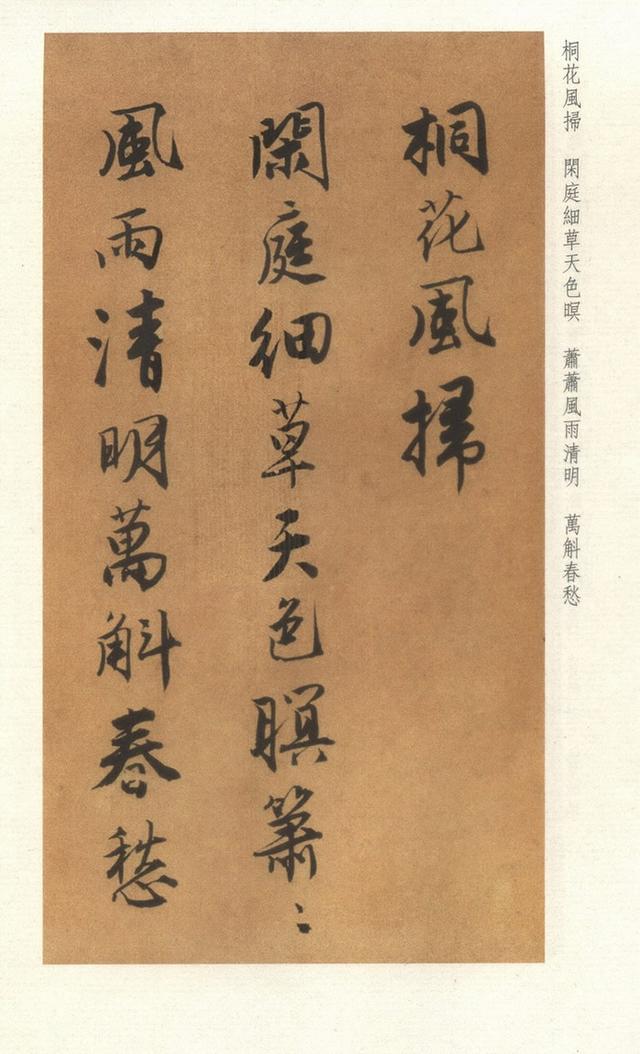 桐花風掃　閑庭細草天色暝　蕭蕭風雨清明　萬斛春愁
桐花風掃
閑庭細草天色暝簫〻
風雨清明萬斛春愁